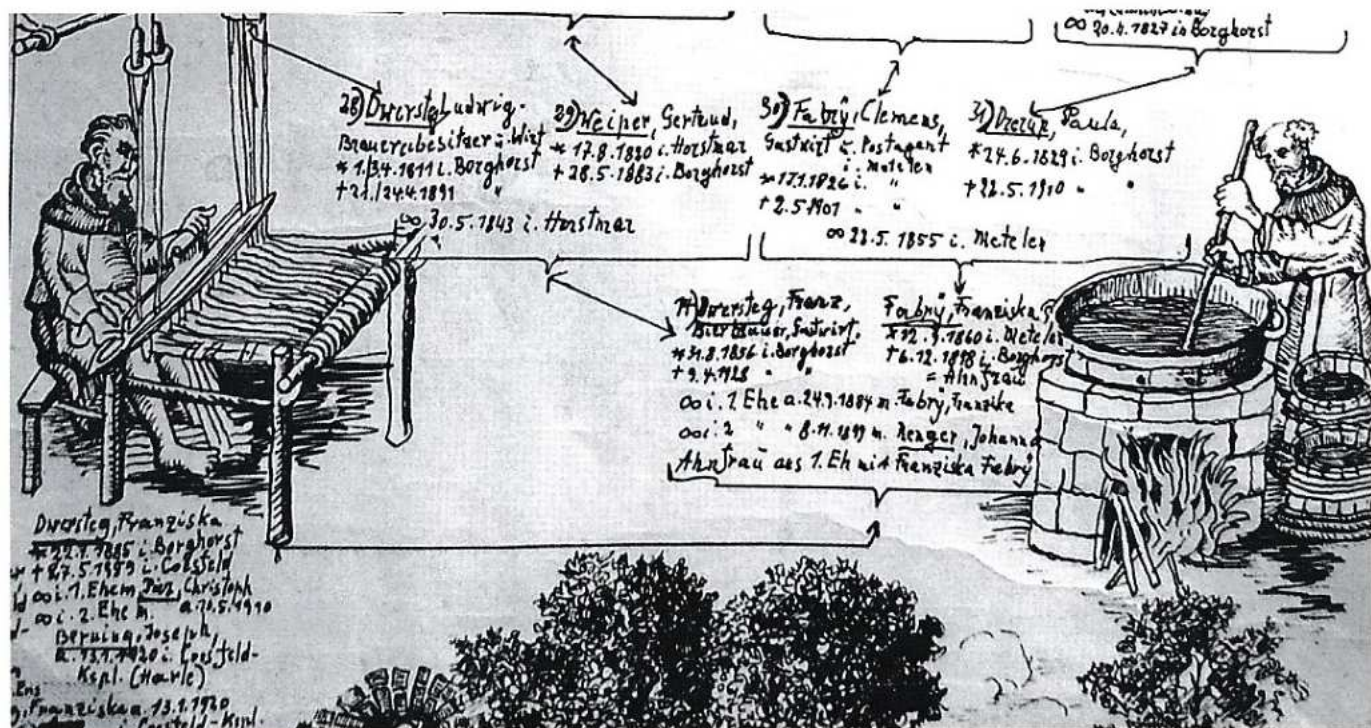 ∞ 20.4.1827 in Borghorst
28) Dwersteg, Ludwig-
Brauereibesitzer u. Wirt
* 1./3.4.1811 i. Borghorst
+ 21./24.4.1891 "
29) Weiper, Gertrud,
* 17.8.1820 i. Horstmar
+ 28.5.1883 i. Borghorst
∞ 30.5.1843 i. Horstmar
30) Fabrÿ, Clemens,
Gastwirt u. Postagent
i. Metelen
* 17.1.1826 i. "
+ 2.5.1901 " "
31) Drerup, Paula,
* 24.6.1829 i. Borghorst
+ 22.5.1910 " "
∞ 22.5.1855 i. Metelen
Dwersteg, Franz,
Bierbrauer, Gastwirt,
* 31.8.1856 i. Borghorst
+ 9.4.1928 " "
Fabrÿ, Franziska
* 12.9.1860 i. Metelen
+ 6.12.1898 i. Borghorst
= Ahnfrau
∞ i. 1. Ehe a. 24.9.1884 m. Fabrÿ, Franziska
∞ i. 2 " " 8.11.1899 m. Renger, Johanna
Ahnfrau aus 1. Eh mit Franziska Fabrÿ
Dwersteg, Franziska
* 22.7.1885 i. Borghorst
+ 27.5.1959 i. Coesfeld
∞ i. 1. Ehe m. Christoph
a. 10.5.1910
∞ i. 2. Ehe m.
Berning, Joseph,
a. 13.1.1920 i. Coesfeld-
Kspl. (Harle)
Franziska a. 13.1.1920
i. Coesfeld-Kspl.